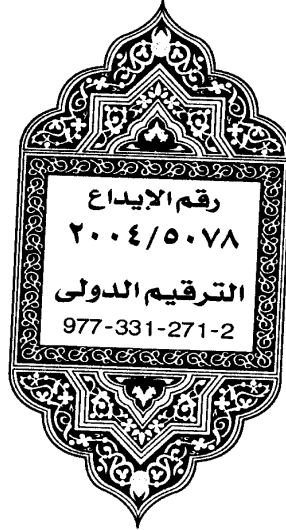 رقم الإيداع
٢٠٠٤/٥٠٧٨
الترقيم الدولى
977-331-271-2